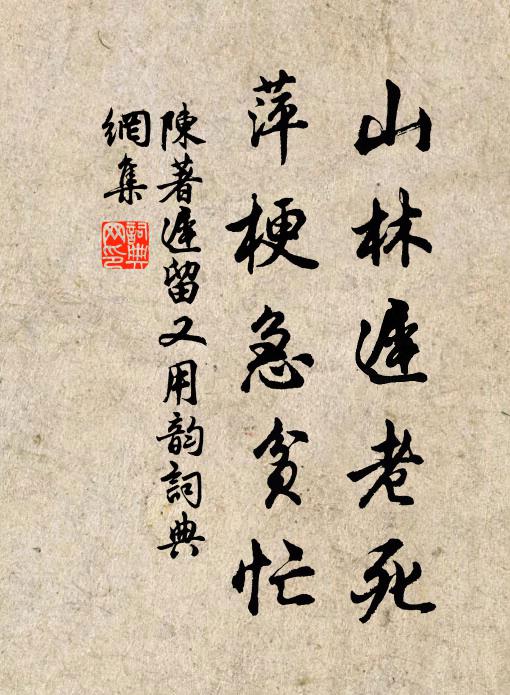 山林遲老死
萍梗急貧忙
陳著遲留又用韵詞典
網集
詞典
网印